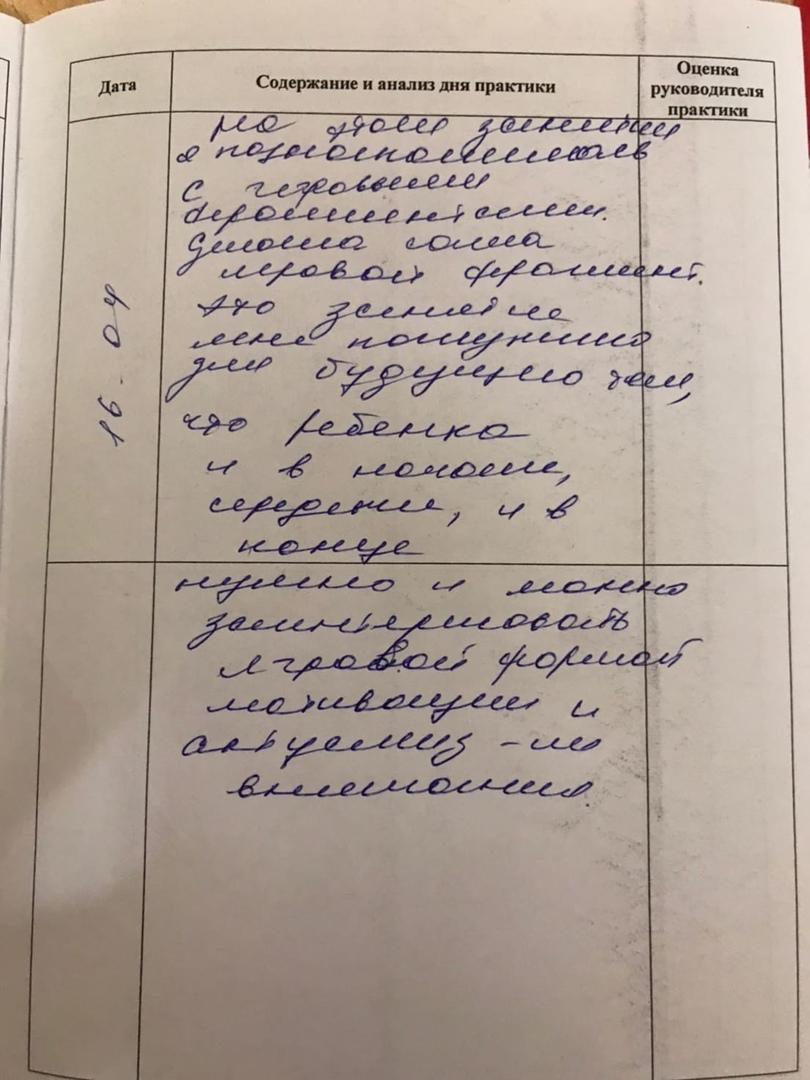 Дата
Содержание и анализ дня практики
Оценка
руководителя
практики
16.04
На этом занятии
я познакомилась
с игровыми
фрагментами.
сама
игровой фрагмент.
Это занятие
мне
для будущего тем,
что ребенка
и в начале,
середине, и в
конце
нужно и можно
заинтересовать
игровой формой
мотивации и
актуализ-ии
внимания.